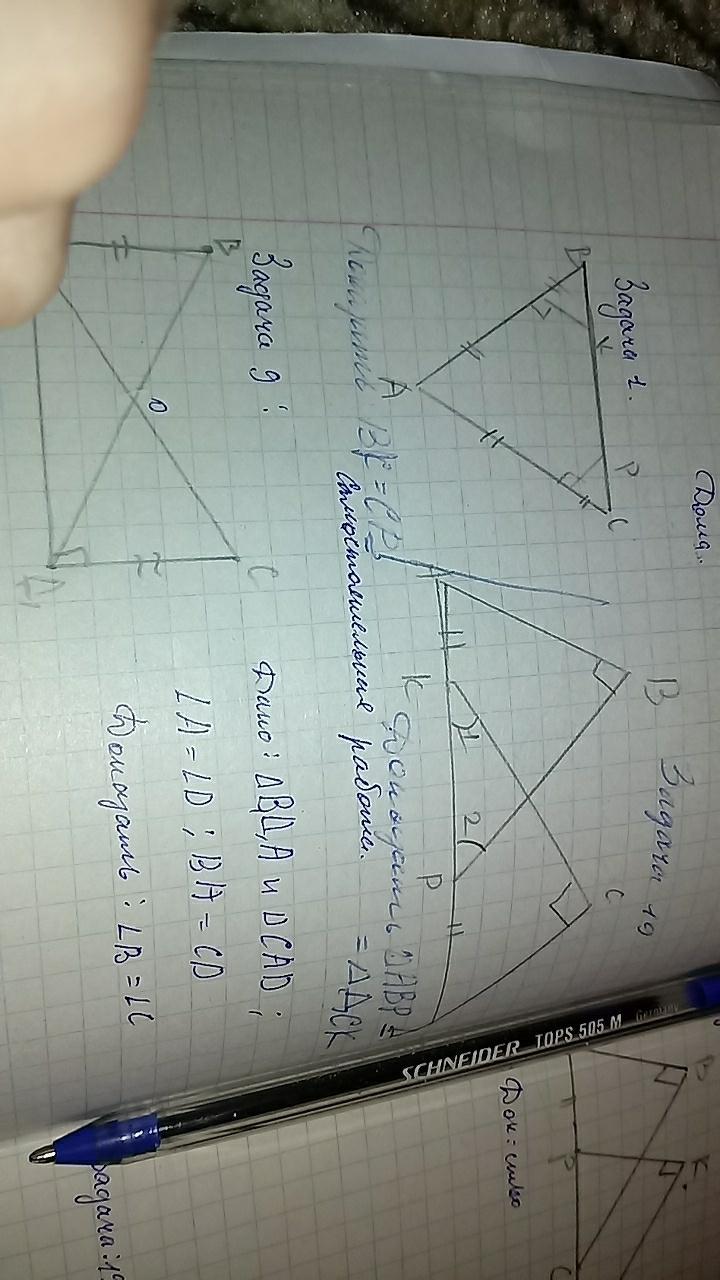 Дома.
Задача 1.
B
K
P
C
A
Доказать BK = CP
Задача 19
B
C
K
P
1
2
Доказать ΔABP =
= ΔДСК
Самостоятельная работа.
Задача 9:
B
O
C
Д
Дано: ΔBДA и DCAD;
∠A = ∠D; BA = CD
Доказать: ∠B = ∠C
SCHNEIDER TOPS 505 M Germany
K
P
Док:
Задача: